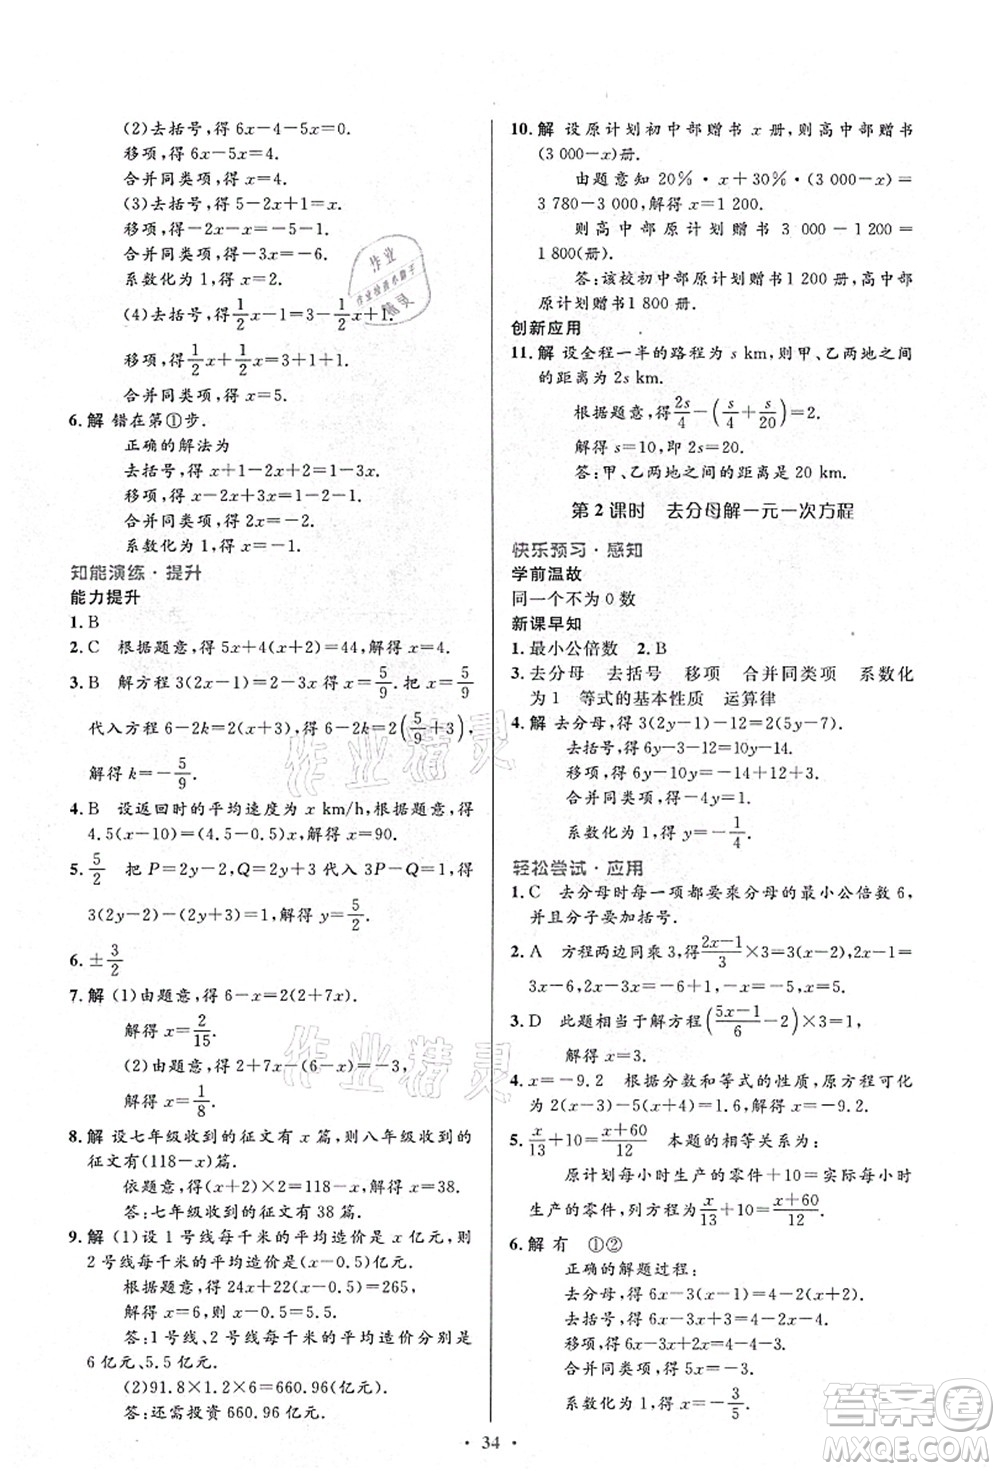 (2)去括号,得 6x-4-5x=0.
移项,得 6x-5x=4.
合并同类项,得 x=4.
(3)去括号,得 5-2x-1=-x.
移项,得 -2x+x=-5+1.
合并同类项,得 -x=-6.
系数化为 1,得 x=2.
(4)去括号,得 1/2x-1=3-1/2x+1.
移项,得 1/2x+1/2x=3+1+1.
合并同类项,得 x=5.
6.解 错在第①步.
正确的解法为
去括号,得 x+1-2x+2=1-3x.
移项,得 x-2x+3x=1-1-2.
合并同类项,得 2x=-2.
系数化为 1,得 x=-1.
知能演练·提升
能力提升
1.B
2.C 根据题意,得 5x+4(x+2)=44,解得 x=4.
3.B 解方程 3(2x-1)=2-3x,得 x=5/9.把 x=5/9
代入方程 6-2k=2(x+3),得 6-2k=2(5/9+3),
解得 k=-5/9.
4.B 设返回时的平均速度为 x km/h,根据题意,得
4.5(x-10)=(4.5-0.5)x,解得 x=90.
5.5/2 把 P=2y-2,Q=2y+3 代入 3P-Q=1,得
3(2y-2)-(2y+3)=1,解得 y=5/2.
6.±3/2
7.解 (1)由题意,得 6-x=2(2+7x).
解得 x=2/15.
(2)由题意,得 2+7x-(6-x)=-3.
解得 x=1/8.
8.解 设七年级收到的征文有 x 篇,则八年级收到的
征文有(118-x)篇.
依题意,得(x+2)×2=118-x,解得 x=38.
答:七年级收到的征文有 38 篇.
9.解 (1)设 1 号线每千米的平均造价是 x 亿元,则
2 号线每千米的平均造价是(x-0.5)亿元.
根据题意,得 24x+22(x-0.5)=265,
解得 x=6,则 x-0.5=5.5.
答:1 号线、2 号线每千米的平均造价分别是
6 亿元、5.5 亿元.
(2)91.8×1.2×6=660.96(亿元).
答:还需投资 660.96 亿元.
10.解 设原计划初中部赠书 x 册,则高中部赠书
(3 000-x)册.
由题意知 20%·x+30%·(3 000-x)=
3 780-3 000,解得 x=1 200.
则高中部原计划赠书 3 000-1 200=1 800
(册).
答:该校初中部原计划赠书1 200册,高中部
原计划赠书1 800 册.
创新应用
11.解 设全程一半的路程为 s km,则甲、乙两地之间
的距离为 2s km.
根据题意,得 2s/4-(s/4+s/20)=2.
解得 s=10,即 2s=20.
答:甲、乙两地之间的距离是 20 km.
第 2 课时 去分母解一元一次方程
快乐预习·感知
学前温故
同一个不为 0 数
新课早知
1.最小公倍数 2.B
3.去分母 去括号 移项 合并同类项 系数化
为 1 等式的基本性质 运算律
4.解 去分母,得 3(2y-1)-12=2(5y-7).
去括号,得 6y-3-12=10y-14.
移项,得 6y-10y=3+12-14.
合并同类项,得 -4y=1.
系数化为 1,得 y=-1/4.
轻松尝试·应用
1.C 去分母时每一项都要乘分母的最小公倍数 6,
并且分子要加括号.
2.A 方程两边同乘 3,得(2x-1)/3×3=3(x-2)+1×
3,2x-1=3x-6+3,2x-3x=-6+1+3,-x=-2,x=2.
3.D 此题相当于解方程((5x-1)/6-2)×3=1,
解得 x=3.
4.x=-9.2 根据分数和等式的性质,原方程可化
为 2(x-3)-5(x+4)=1.6,解得 x=-9.2.
5.x/13+10=(x+60)/12 本题的相等关系为:
原计划每小时生产的零件+10=实际每小时
生产的零件,列方程为 x/13+10=(x+60)/12.
6.解 有 ①②
正确的解题过程:
去分母,得 6x-3(x-1)=4-2(x+2).
去括号,得 6x-3x+3=4-2x-4.
移项,得 6x-3x+2x=4-4-3.
合并同类项,得 5x=-3.
系数化为 1,得 x=-3/5.
· 34 ·
作业精灵
作业精灵
答案圈
MXQE.COM